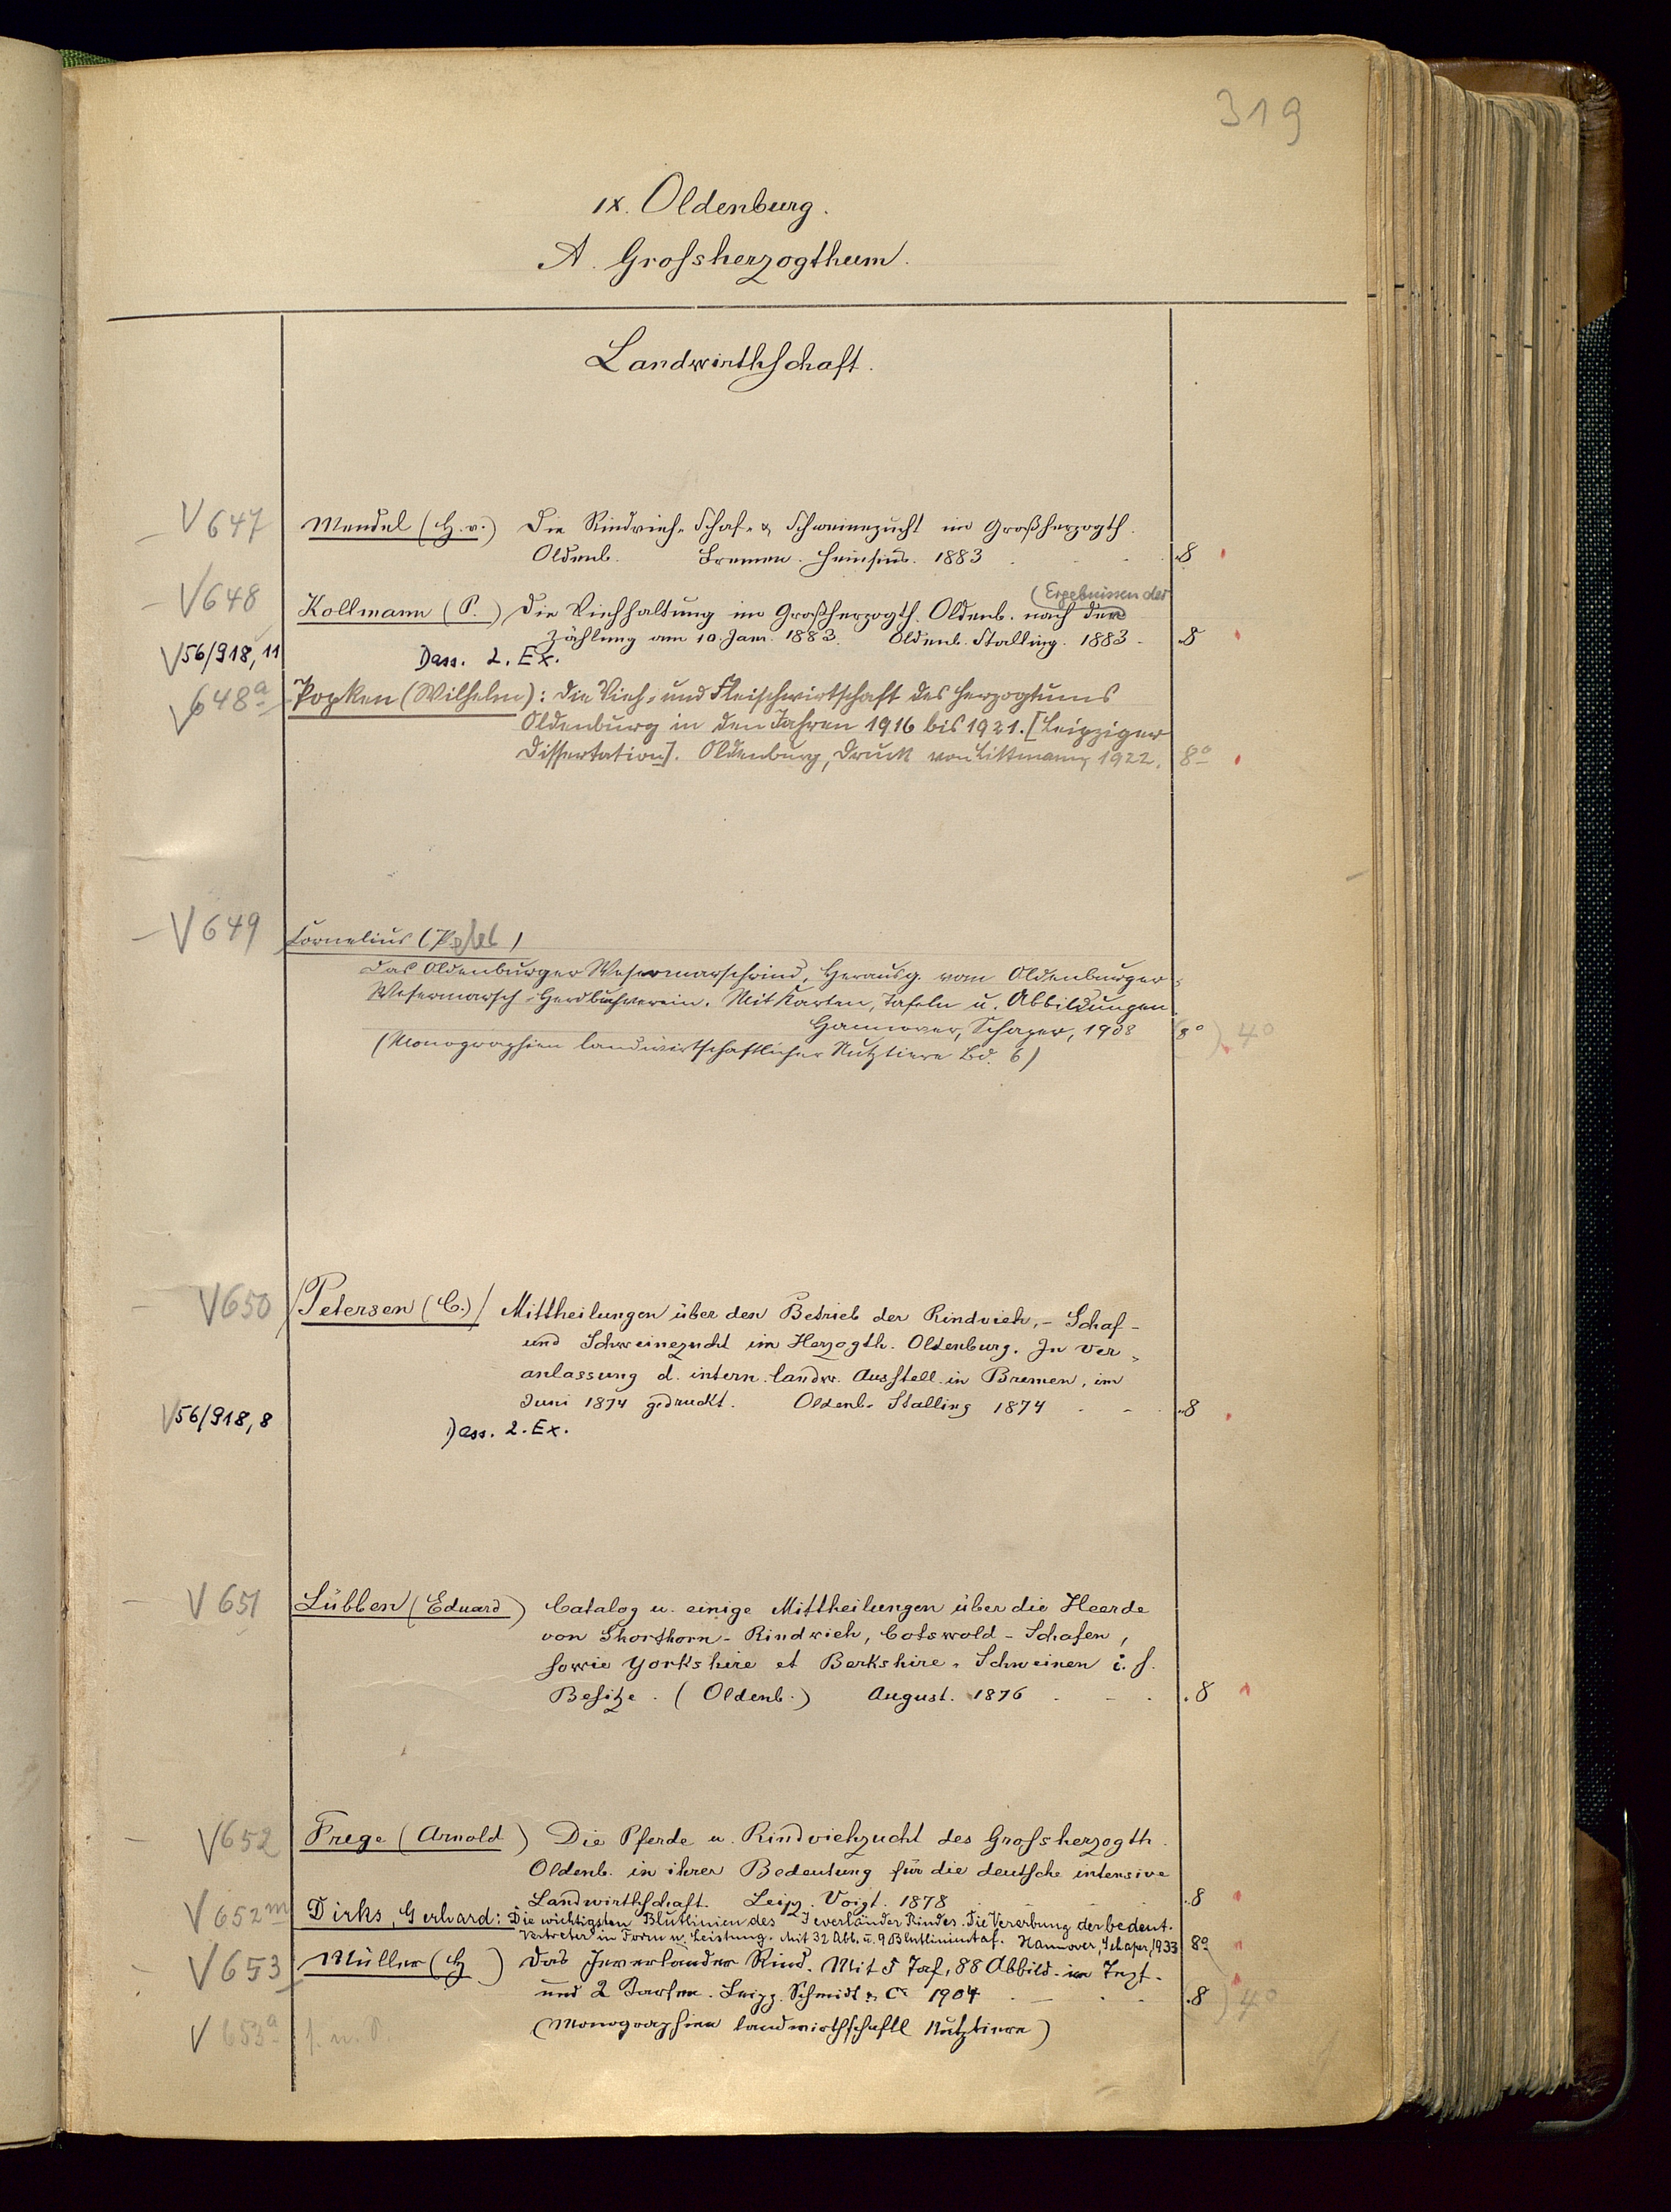 319
IX. Oldenburg.
A. Großherzogthum.
Landwirthschaft.
V 647 Mendel (H. v.) Die Rindvieh- Schaf- & Schweinezucht im Großherzogth.
Oldenb. Bremen. Heinsius. 1883 . 8
V 648 Kollmann (P.) Die Viehhaltung im Großherzogth. Oldenb. nach den (Ergebnissen der
Zählung am 10. Jan. 1883. Oldenb. Stalling. 1883 - 8
V 56/918, 11 Dass. 2. Ex.
V 648a Popken (Wilhelm): Die Vieh- und Fleischwirtschaft des Herzogtums
Oldenburg in den Jahren 1916 bis 1921. [Leipziger
Dissertation]. Oldenburg, Druck von Littmann, 1922. 8o
V 649 Cornelius (Peter)
Das Oldenburger Wesermarschrind, Herausg. vom Oldenburger-
Wesermarsch-Herdbuchverein. Mit Karten, Tafeln u. Abbildungen
Hannover, Schaper, 1908 (8o) 4o
(Monographien landwirtschaftlicher Nutztiere Bd. 6)
V 650 /Petersen (C.)/ Mittheilungen über den Betrieb der Rindvieh,- Schaf-
und Schweinezucht im Herzogth. Oldenburg. In Ver-
anlassung d. intern. landw. Ausstell. in Bremen, im
Juni 1874 gedruckt. Oldenb. Stalling 1874 - - . 8
V 56/918, 8 Dass. 2. Ex.
V 651 Lübben (Eduard) Catalog u. einige Mittheilungen über die Heerde
von Shorthorn- Rindvieh, Cotswold- Schafen,
sowie Yorkshire et Berkshire- Schweinen i. s.
Besitze. (Oldenb.) August. 1876 . - . . 8
V 652 Frege (Arnold) Die Pferde u. Rindviehzucht des Großherzogth.
Oldenb. in ihrer Bedeutung für die deutsche intensive
Landwirthschaft. Leipz. Voigt. 1878 . 8
V 652m Dirks, Gerhard: Die wichtigsten Blutlinien des Jeverländer Rindes. Die Vererbung der bedeut.
Vertreter in Form u. Leistung. Mit 32 Abb. u. 9 Blutlinientaf. Hannover, Schaper, 1933 8o
V 653 Müller (H ) Das Jeverländer Rind. Mit 5 Taf, 88 Abbild. im Text.
und 2 Karten. Leipz. Schmidt & Co 1904 . - . . 8 ) 4o
(Monographien landwirthschaftl Nutztiere)
V 653a s. n. S.